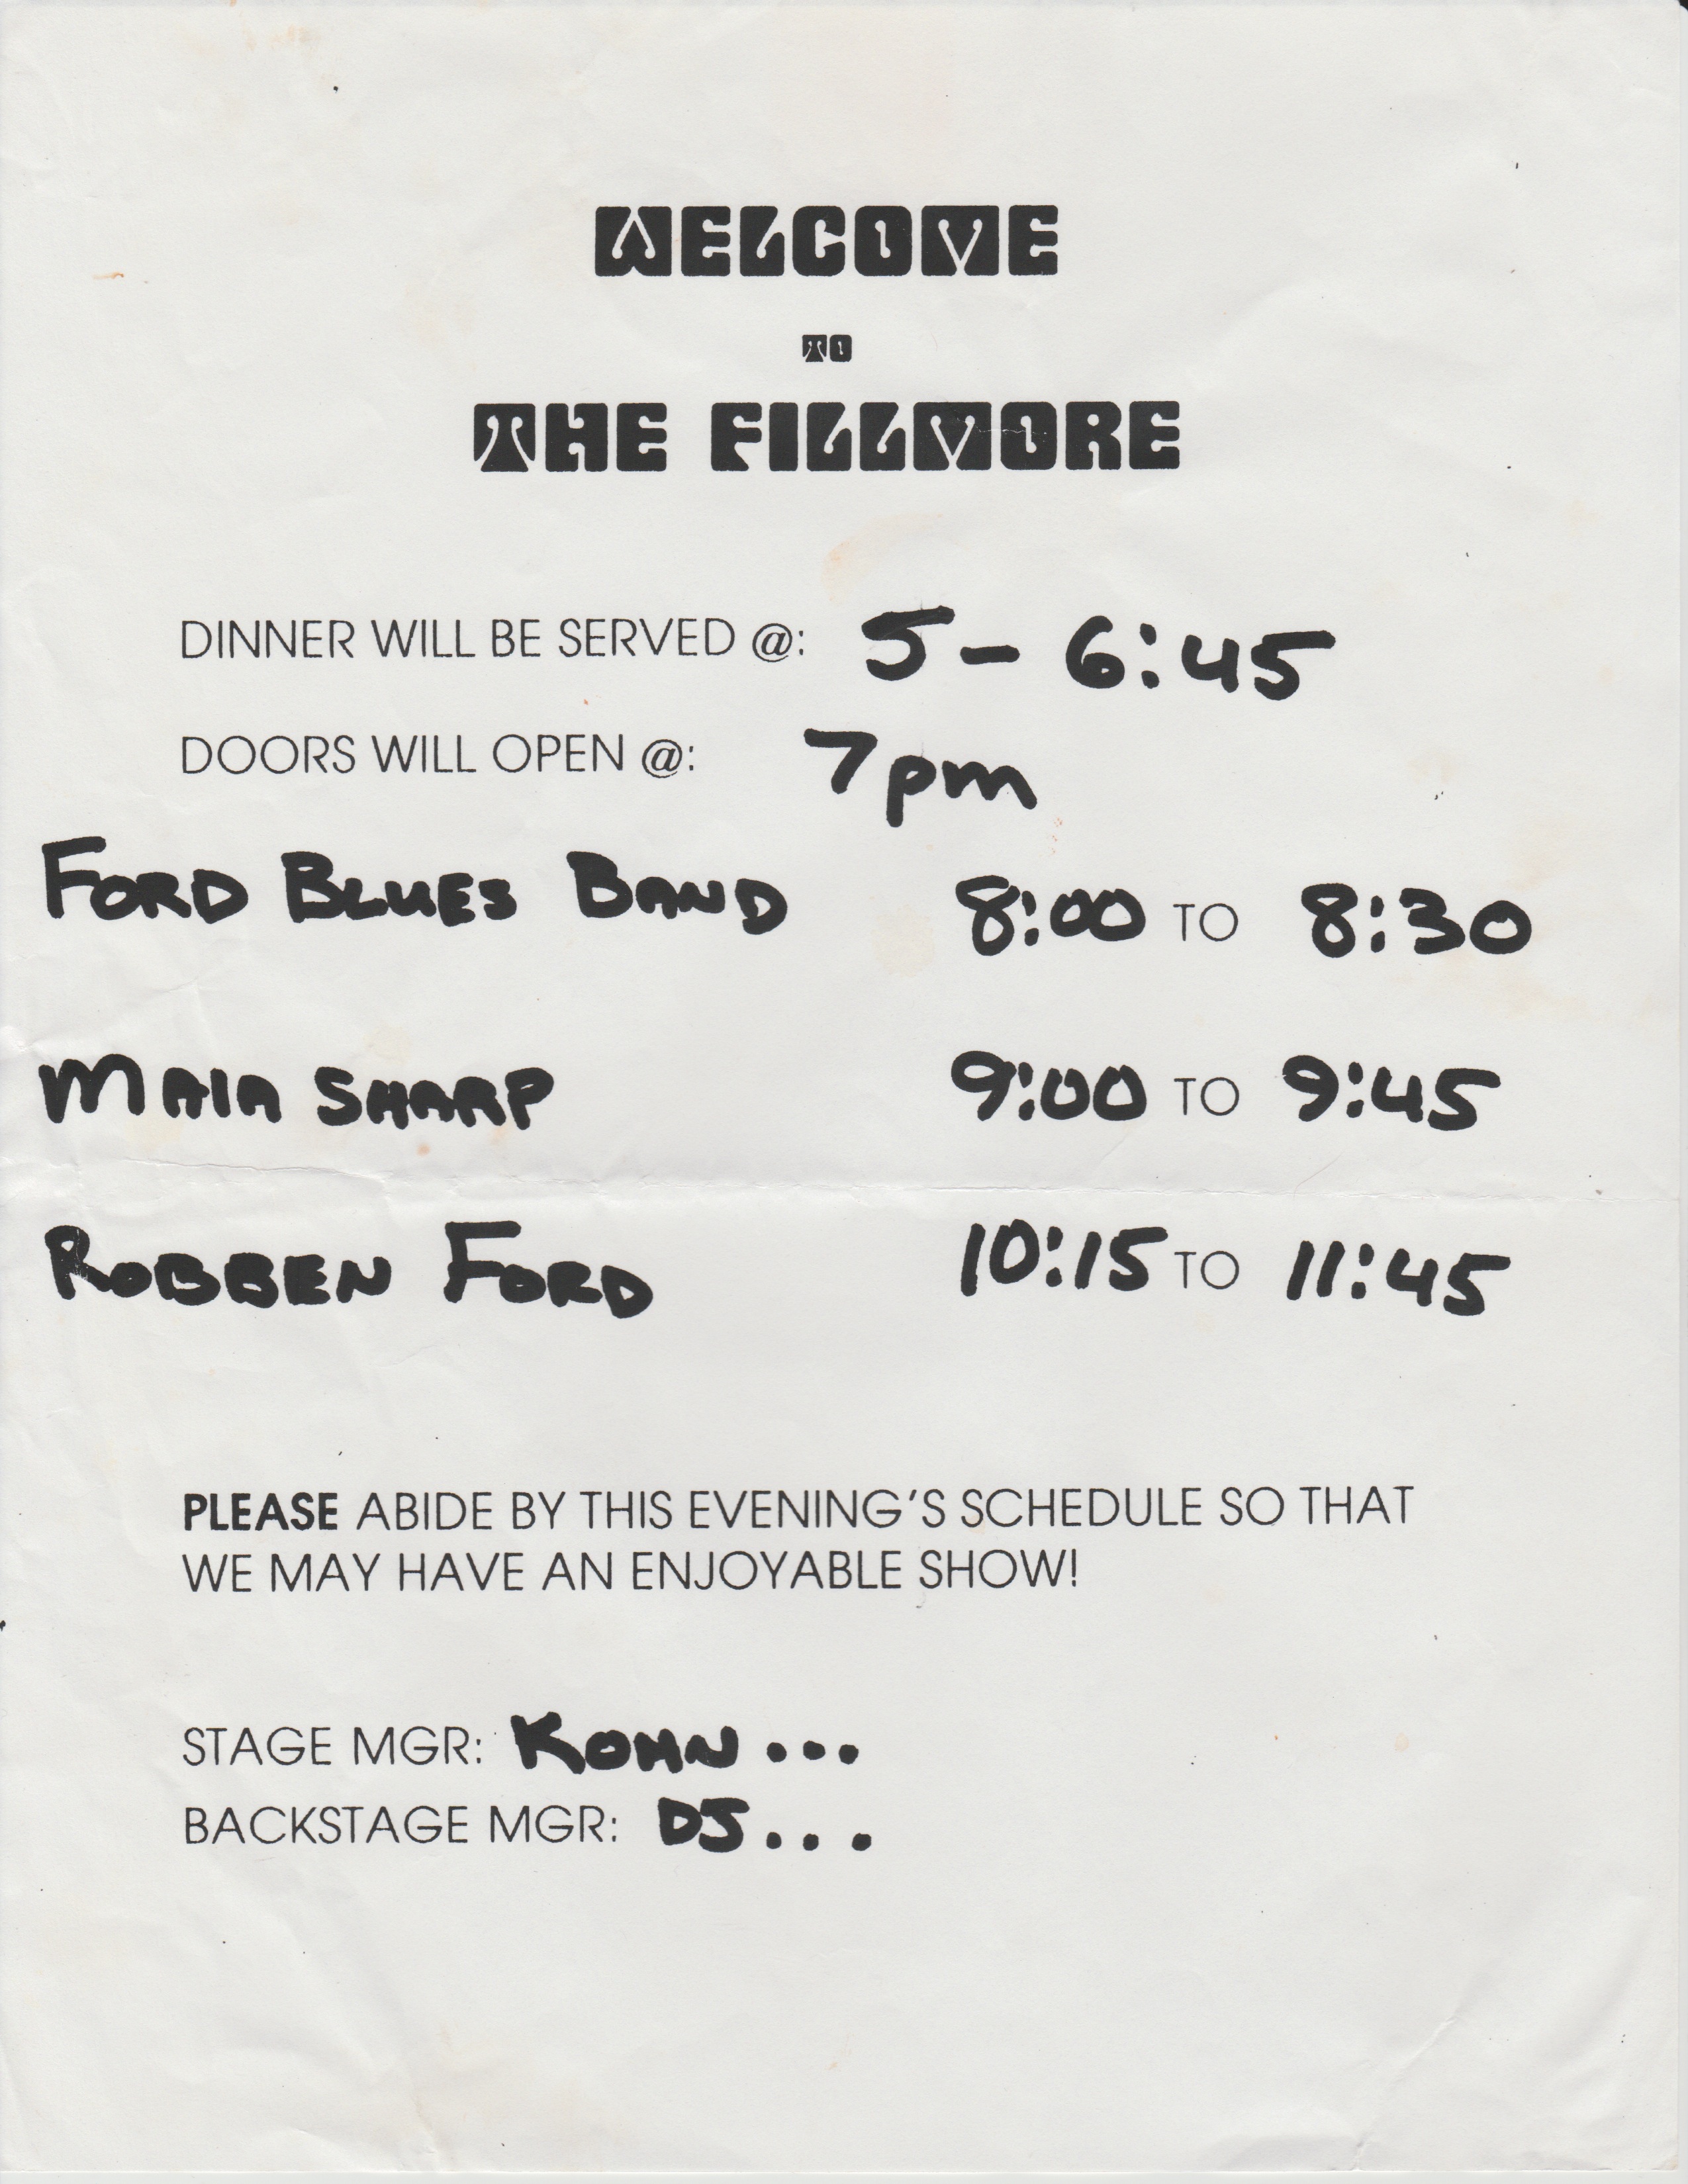 WELCOME
TO
THE FILLMORE
DINNER WILL BE SERVED @: 5 - 6:45
DOORS WILL OPEN @: 7pm
FORD BLUES BAND 8:00 TO 8:30
MAIA SHARP 9:00 TO 9:45
ROBBEN FORD 10:15 TO 11:45
PLEASE ABIDE BY THIS EVENING'S SCHEDULE SO THAT
WE MAY HAVE AN ENJOYABLE SHOW!
STAGE MGR: KOHN...
BACKSTAGE MGR: DJ...